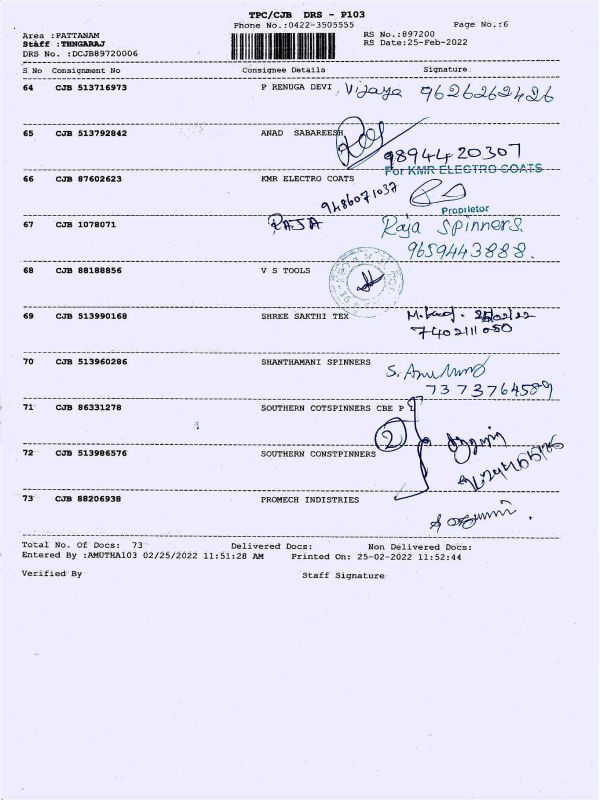 TPC/CJB DRS - P103
Phone No.:0422-3505555 Page No.:6
Area :PATTANAM RS No.:897200
Staff :TENGARAJ RS Date:25-Feb-2022
DRS No. :DCJB89720006
S No Consignment No Consignee Details Signature
64 CJB 513716973 P RENUGA DEVI Vijaya 9626262426
65 CJB 513792842 ANAD SABAREESH
9894420307
For KMR ELECTRO COATS
66 CJB 87602623 KMR ELECTRO COATS 9486071037
Proprietor
67 CJB 1078071 RAJA Raja Spinners.
9659443888.
68 CJB 88188856 V S TOOLS
69 CJB 513990168 SHREE SAKTHI TEX 25/02/22
7402111050
70 CJB 513960286 SHANTHAMANI SPINNERS
7373764589
71 CJB 86331278 SOUTHERN COTSPINNERS CBE P L
2
72 CJB 513986576 SOUTHERN CONSTPINNERS
73 CJB 88206938 PROMECH INDISTRIES
Total No. Of Docs: 73 Delivered Docs: Non Delivered Docs:
Entered By :AMUTHA103 02/25/2022 11:51:28 AM Printed On: 25-02-2022 11:52:44
Verified By Staff Signature